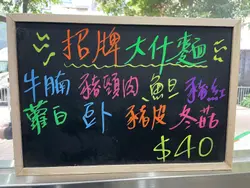 招牌大什麵
牛腩 豬頸肉 魚旦 豬紅
蘿白 卧 豬皮 冬菇
$40